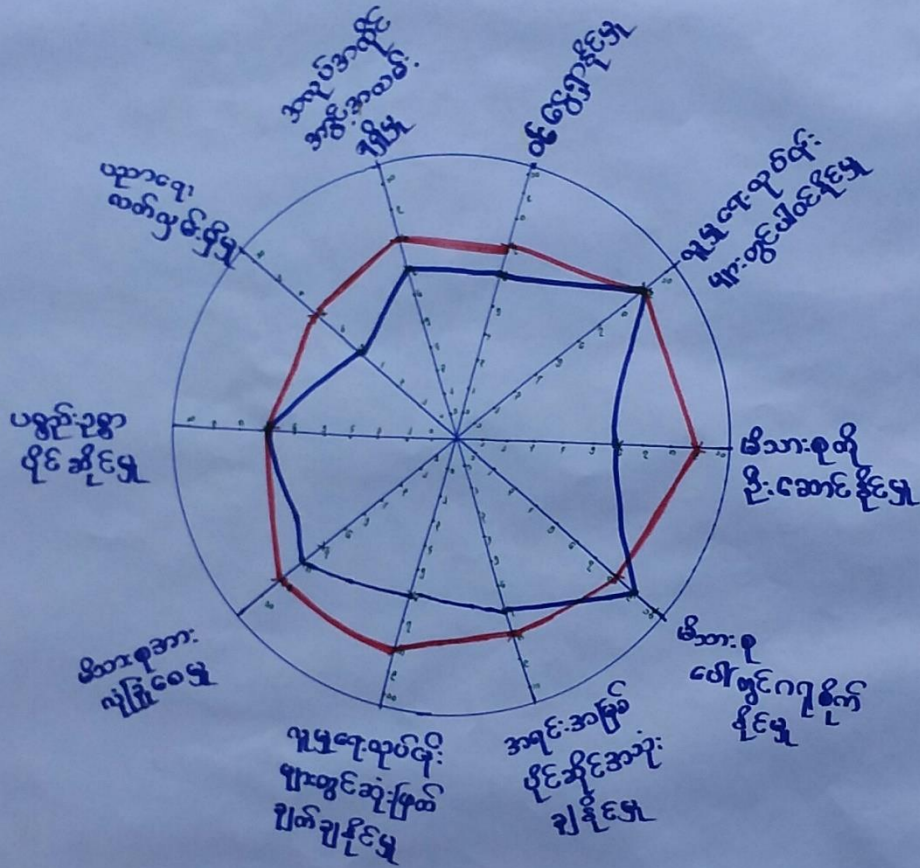 အလုပ်အကိုင်
အခွင့်အလမ်း
ရရှိမှု
ဝင်ငွေရှာနိုင်မှု
လူမှုရေးလုပ်ငန်း
များတွင်ပါဝင်နိုင်မှု
မိသားစုကို
ဦးဆောင်နိုင်မှု
မိသားစု
ပေါ်တွင်ဂရုစိုက်
နိုင်မှု
အရင်းအမြစ်
ပိုင်ဆိုင်အသုံး
ချနိုင်မှု
လူမှုရေးလုပ်ငန်း
များတွင်ဆုံးဖြတ်
ချက်ချနိုင်မှု
မိသားစုအား
လုံခြုံစေမှု
ပစ္စည်းဥစ္စာ
ပိုင်ဆိုင်မှု
ပညာရေး
လက်လှမ်းမှီမှု